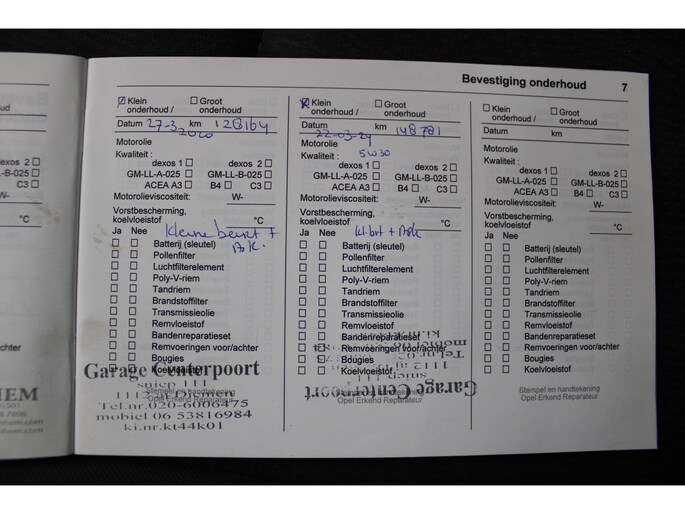 Bevestiging onderhoud 7
Klein onderhoud /
Groot onderhoud
Datum 27-3 2020 km 128164
Motorolie
Kwaliteit :
dexos 1 dexos 2
GM-LL-A-025 GM-LL-B-025
ACEA A3 B4 C3
Motorolieviscositeit: W-
Vorstbescherming,
koelvloeistof °C
Ja Nee Kleine beurt +
Batterij (sleutel) APK.
Pollenfilter
Luchtfilterelement
Poly-V-riem
Tandriem
Brandstoffilter
Transmissieolie
Remvloeistof
Bandenreparatieset
Remvoeringen voor/achter
Bougies
Koelvloeistof
Garage Centerpoort
sniep 111
1112 aj Diemen
Stempel en handtekening
Opel Erkend Reparateur
Tel.nr.020-6006475
mobiel 06 53816984
ki.nr.kt44k01
Klein onderhoud /
Groot onderhoud
Datum 22-03-24 km 148781
Motorolie
Kwaliteit : 5W30
dexos 1 dexos 2
GM-LL-A-025 GM-LL-B-025
ACEA A3 B4 C3
Motorolieviscositeit: W-
Vorstbescherming,
koelvloeistof °C
Ja Nee kl.brt + APK
Batterij (sleutel)
Pollenfilter
Luchtfilterelement
Poly-V-riem
Tandriem
Brandstoffilter
Transmissieolie
Remvloeistof
Bandenreparatieset
Remvoeringen voor/achter
Bougies
Koelvloeistof
Garage Centerpoort
sniep 111
Stempel en handtekening
Opel Erkend Reparateur
Klein onderhoud /
Groot onderhoud
Datum km
Motorolie
Kwaliteit :
dexos 1 dexos 2
GM-LL-A-025 GM-LL-B-025
ACEA A3 B4 C3
Motorolieviscositeit: W-
Vorstbescherming,
koelvloeistof °C
Ja Nee
Batterij (sleutel)
Pollenfilter
Luchtfilterelement
Poly-V-riem
Tandriem
Brandstoffilter
Transmissieolie
Remvloeistof
Bandenreparatieset
Remvoeringen voor/achter
Bougies
Koelvloeistof
Stempel en handtekening
Opel Erkend Reparateur